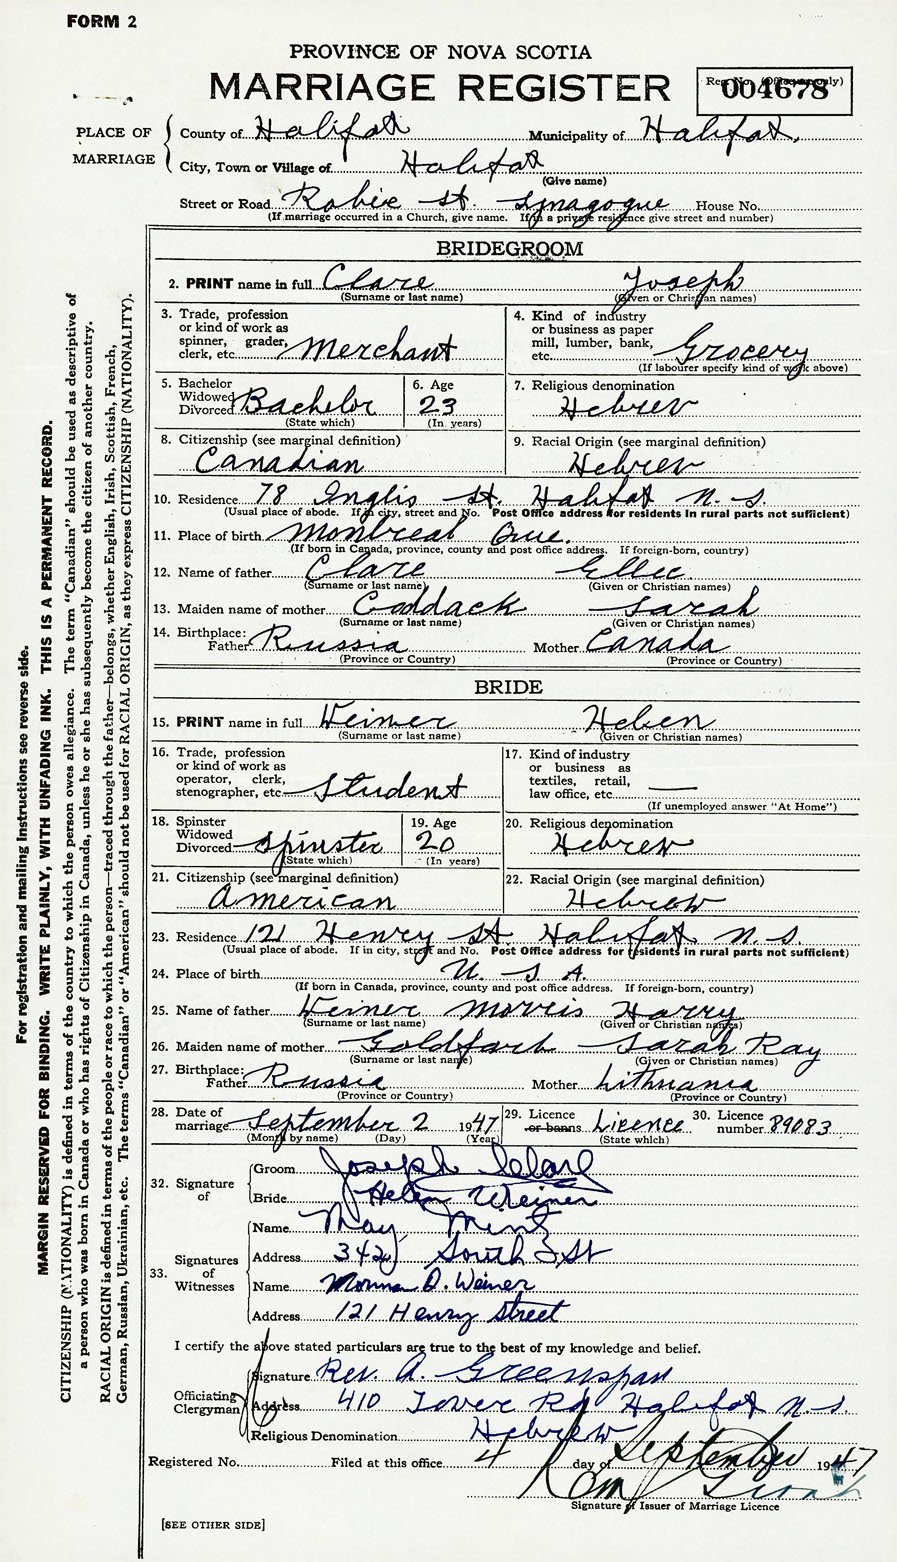 FORM 2
PROVINCE OF NOVA SCOTIA
MARRIAGE REGISTER
Reg. No. (Office use only)
004678
PLACE OF MARRIAGE
County of Halifax Municipality of Halifax,
City, Town or Village of Halifax
(Give name)
Street or Road Robie St. Synagogue House No.
(If marriage occurred in a Church, give name. If in a private residence give street and number)
BRIDEGROOM
2. PRINT name in full Clare Joseph
(Surname or last name) (Given or Christian names)
3. Trade, profession or kind of work as spinner, grader, clerk, etc. Merchant
4. Kind of industry or business as paper mill, lumber, bank, etc. Grocery
(If labourer specify kind of work above)
5. Bachelor Widowed Divorced Bachelor
(State which)
6. Age 23
(In years)
7. Religious denomination
Hebrew
8. Citizenship (see marginal definition)
Canadian
9. Racial Origin (see marginal definition)
Hebrew
10. Residence 78 Inglis St. Halifax N.S.
(Usual place of abode. If in city, street and No. Post Office address for residents in rural parts not sufficient)
11. Place of birth Montreal Que.
(If born in Canada, province, county and post office address. If foreign-born, country)
12. Name of father Clare
(Surname or last name) (Given or Christian names)
13. Maiden name of mother Sarah
(Surname or last name) (Given or Christian names)
14. Birthplace: Father Russia Mother Canada
(Province or Country) (Province or Country)
BRIDE
15. PRINT name in full Weiner Helen
(Surname or last name) (Given or Christian names)
16. Trade, profession or kind of work as operator, clerk, stenographer, etc. Student
17. Kind of industry or business as textiles, retail, law office, etc. —
(If unemployed answer "At Home")
18. Spinster Widowed Divorced Spinster
(State which)
19. Age 20
(In years)
20. Religious denomination
Hebrew
21. Citizenship (see marginal definition)
American
22. Racial Origin (see marginal definition)
Hebrew
23. Residence 121 Henry St Halifax N.S.
(Usual place of abode. If in city, street and No. Post Office address for residents in rural parts not sufficient)
24. Place of birth U.S.A.
(If born in Canada, province, county and post office address. If foreign-born, country)
25. Name of father Weiner Morris Harry
(Surname or last name) (Given or Christian names)
26. Maiden name of mother Goldfarb Sarah Ray
(Surname or last name) (Given or Christian names)
27. Birthplace: Father Russia Mother Lithuania
(Province or Country) (Province or Country)
28. Date of marriage September 2 1947
(Month by name) (Day) (Year)
29. Licence or banns Licence
(State which)
30. Licence number 89083
32. Signature of
Groom Joseph Clare
Bride Helen Weiner
33. Signatures of Witnesses
Name May Mint
Address South St
Name D. Weiner
Address 121 Henry Street
I certify the above stated particulars are true to the best of my knowledge and belief.
Officiating Clergyman
Signature Rev. A. Greenspan
Address 410 Tower Rd Halifax N.S.
Religious Denomination Hebrew
Registered No. Filed at this office 4 day of September 1947
Signature of Issuer of Marriage Licence
[SEE OTHER SIDE]
For registration and mailing instructions see reverse side.
MARGIN RESERVED FOR BINDING. WRITE PLAINLY, WITH UNFADING INK. THIS IS A PERMANENT RECORD.
CITIZENSHIP (NATIONALITY) is defined in terms of the country to which the person owes allegiance. The term "Canadian" should be used as descriptive of
a person who was born in Canada or who has rights of Citizenship in Canada, unless he or she has subsequently become the citizen of another country.
RACIAL ORIGIN is defined in terms of the people or race to which the person—traced through the father—belongs, whether English, Irish, Scottish, French,
German, Russian, Ukrainian, etc. The terms "Canadian" or "American" should not be used for RACIAL ORIGIN, as they express CITIZENSHIP (NATIONALITY).